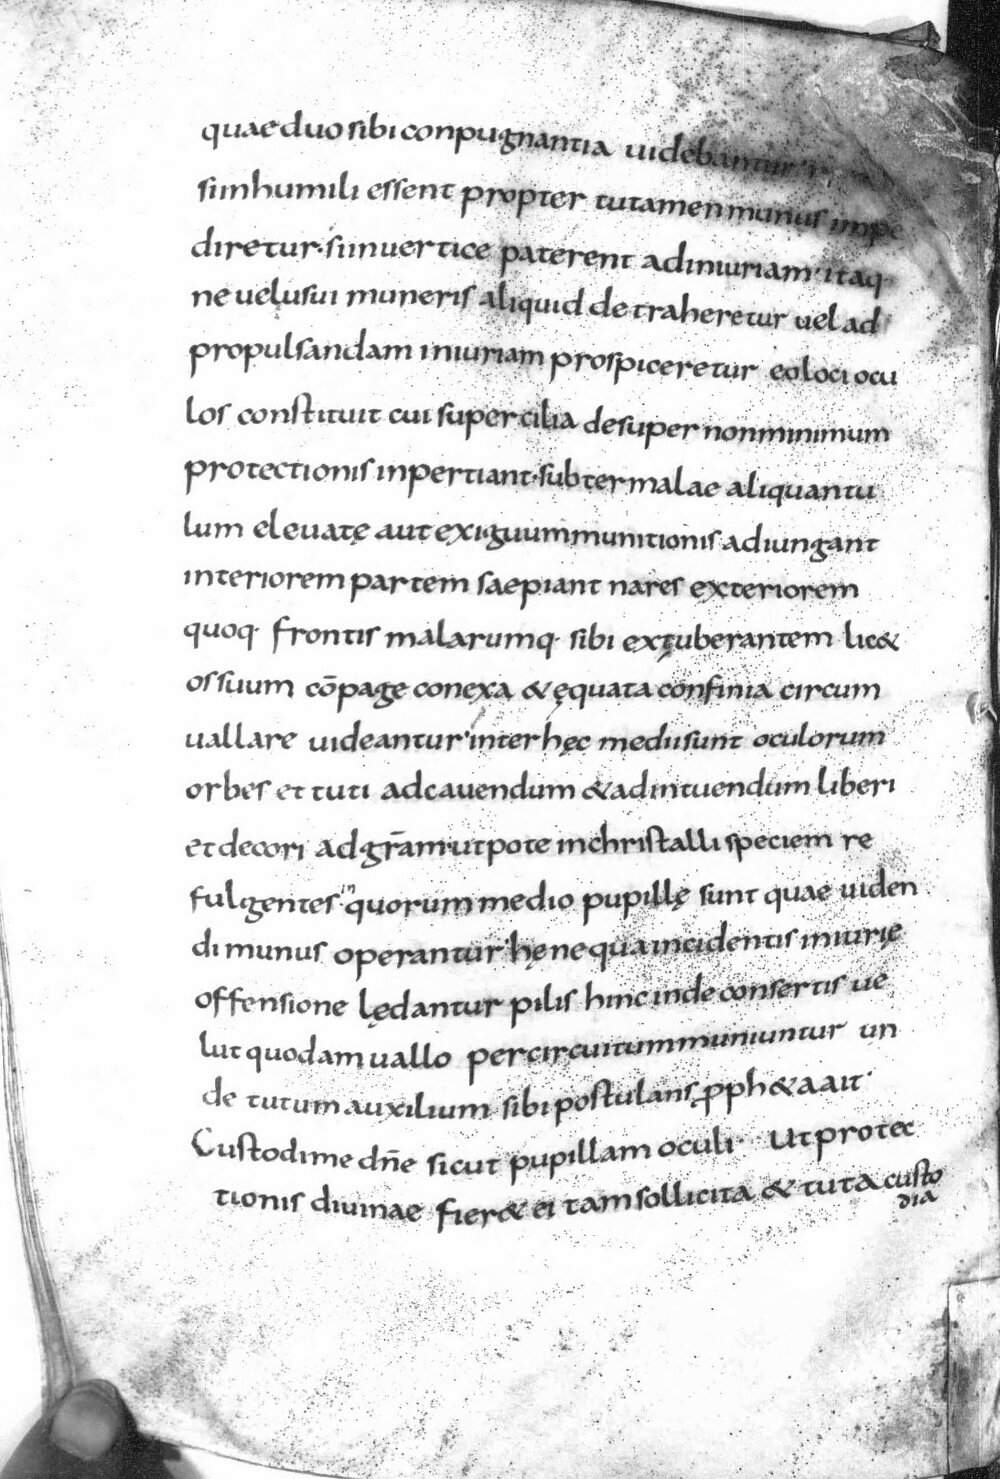 quae duo sibi conpugnantia uidebantur
si inhumili essent propter tutamen munus impe
diretur· si inuertice paterent adiniuriam· itaq·
ne uelusui muneris aliquid detraheretur uel ad
propulsandam iniuriam prospiceretur eoloci ocu
los constituit cui supercilia desuper nonminimum
protectionis inpertiant· subter malae aliquantu
lum eleuatę aut exiguum munitionis adiungant
interiorem partem saepiant nares exteriorem
quoq· frontis malarumq· sibi extuberantem lic&
ossuum cōpage conexa & ęquata confinia circum
uallare uideantur· inter hęc medii sunt oculorum
orbes et tuti adcauendum & adintuendum liberi
et decori ad grām· utpote inchristalli speciem re
fulgentes· inquorum medio pupillę sunt quae uiden
di munus operantur· hę nequa incidentis iniurię
offensione lędantur pilis hinc inde consertis ue
lut quodam uallo percircuitum muniuntur un
de tutum auxilium sibi postulans ꝓph&a ait·
Custodi me dn̄e sicut pupillam oculi· Ut protec
tionis diuinae fier& ei tam sollicita & tuta custo
dia